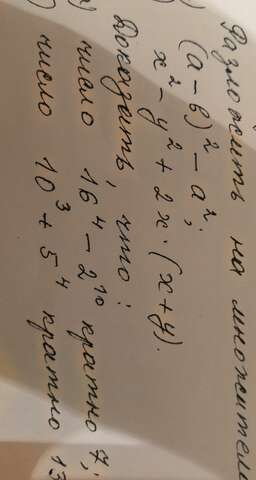 Разложить на множители
(а - в)² - а²;
х² - у² + 2х · (х + у).
Доказать, что:
число 16⁴ - 2¹⁰ кратно 7;
число 10³ + 5⁴ кратно 13